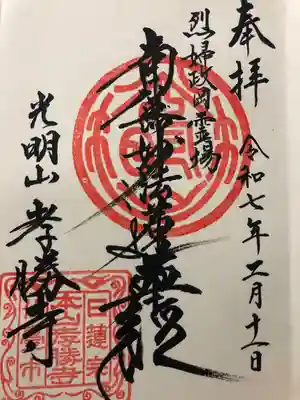 奉拝
令和七年二月十一日
烈婦政岡霊場
南無妙法蓮華経
光明山 孝勝寺
日蓮宗
本山孝勝寺